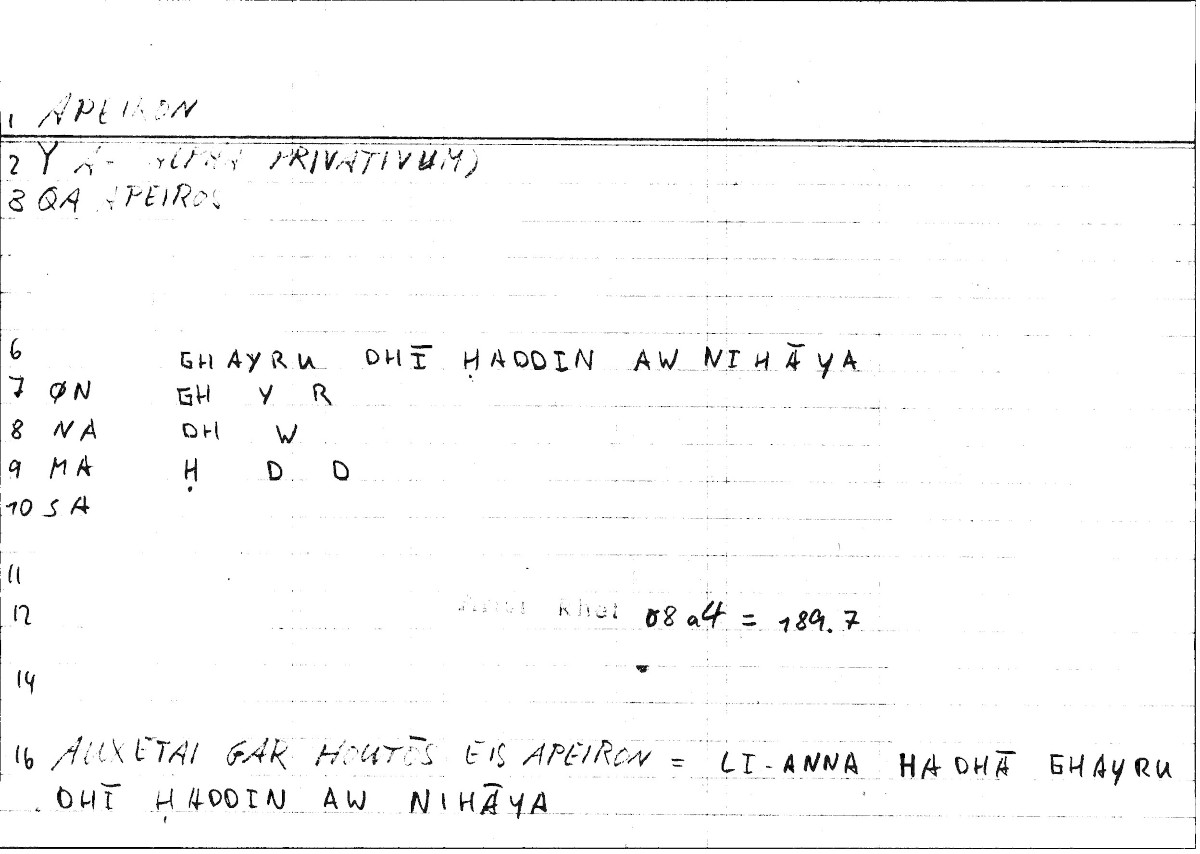 1 APEIRON
2 Y A- ALPHA PRIVATIVUM)
3 QA APEIROS
6 GHAYRU DHĪ ḤADDIN AW NIHĀYA
7 ØN GH Y R
8 NA DH W
9 MA Ḥ D D
10 SA
11
12 Arist Rhet 08a4 = 189.7
14
16 AUXETAI GAR HOUTŌS EIS APEIRON = LI-ANNA HADHĀ GHAYRU
DHĪ ḤADDIN AW NIHĀYA